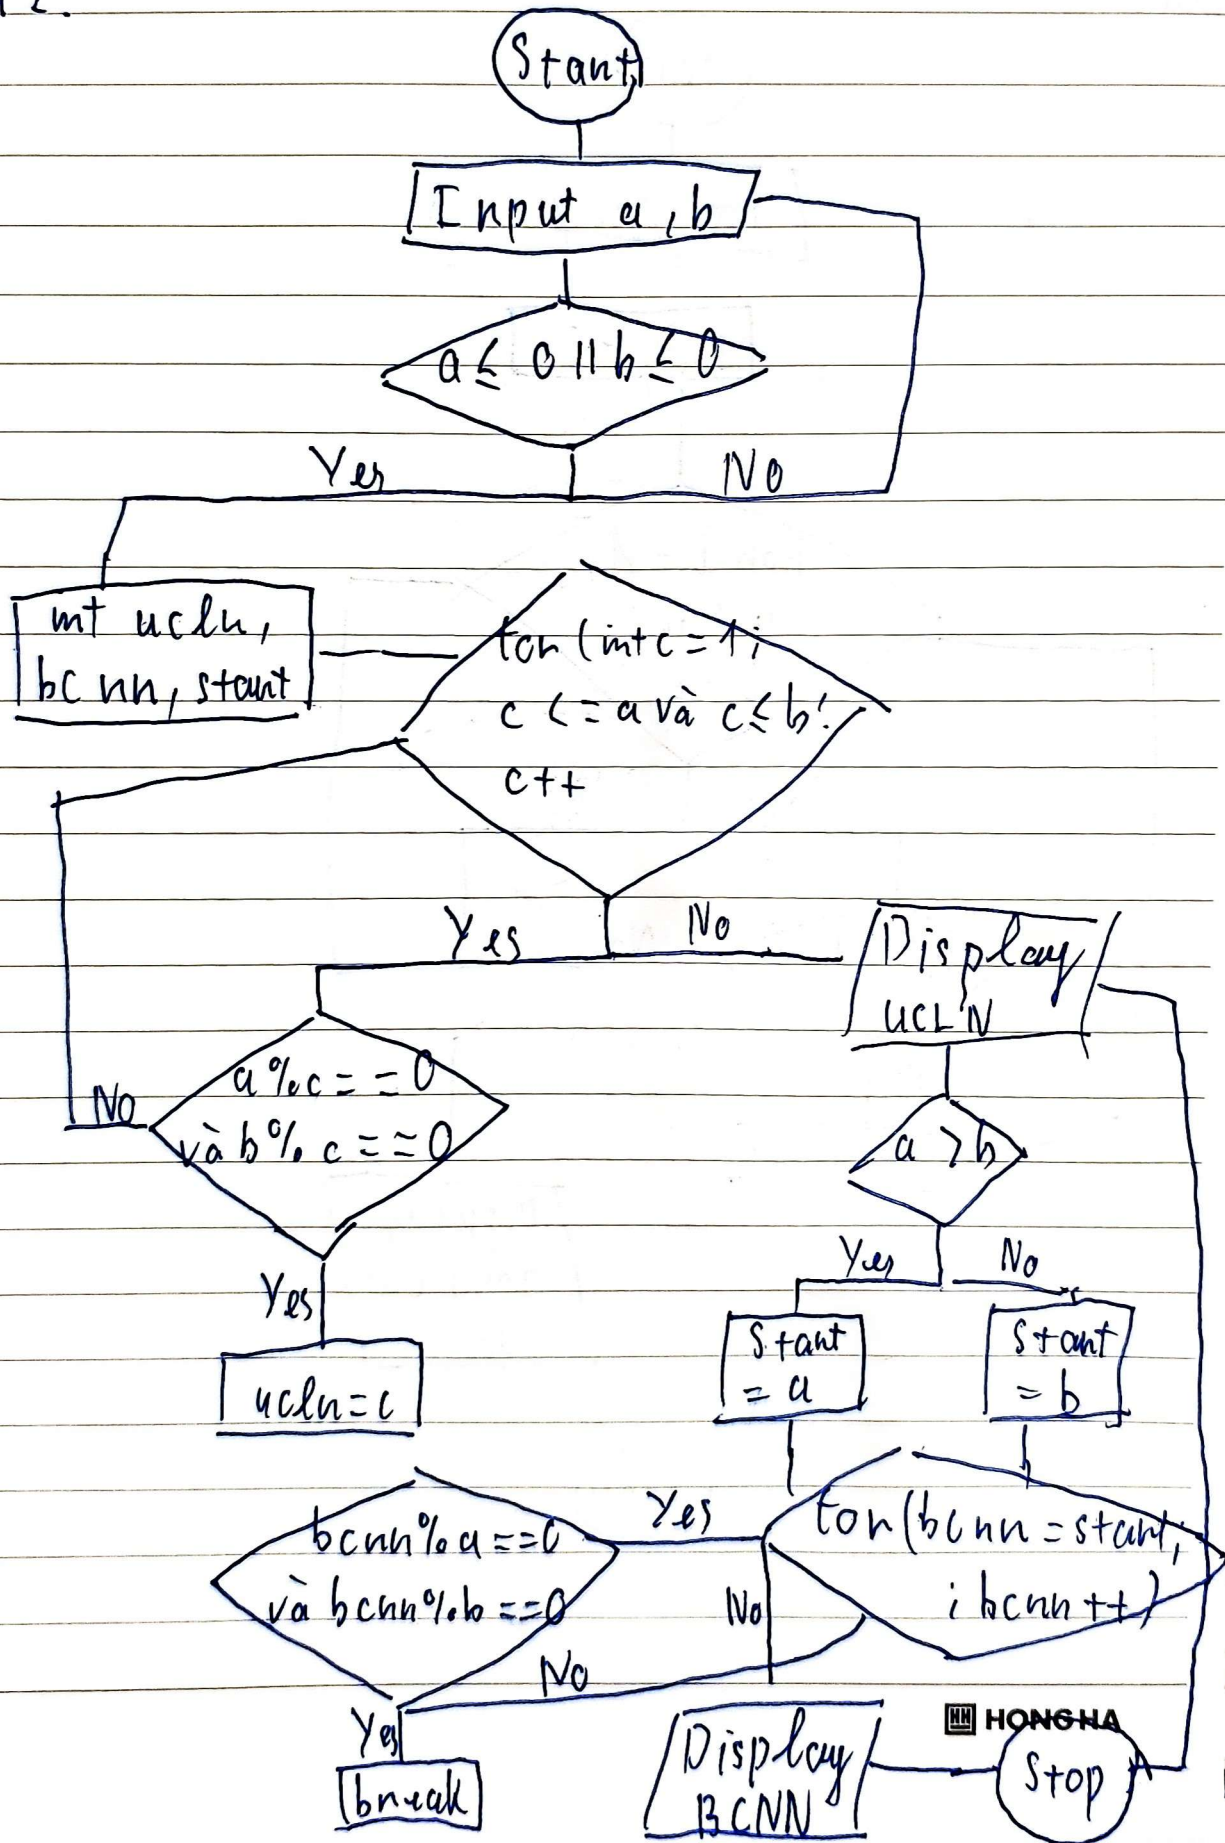 2.
Start
Input a, b
a ≤ 0 || b ≤ 0
Yes
No
int ucln,
bcnn, start
for (int c = 1;
c <= a và c ≤ b;
c++
Yes
No
Display
UCLN
a % c == 0
và b % c == 0
No
a > b
Yes
No
Yes
Start
= a
Start
= b
ucln = c
bcnn % a == 0
và bcnn % b == 0
Yes
for (bcnn = start;
; bcnn ++)
No
No
Yes
break
Display
BCNN
HH HONG HA
Stop